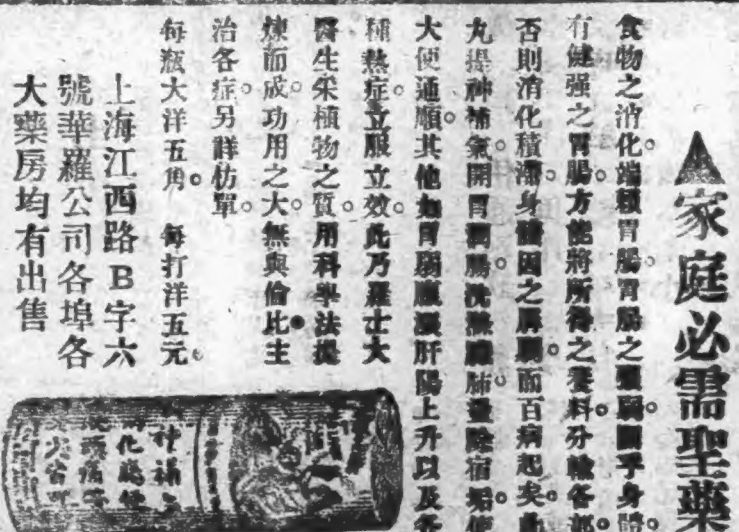 ▲家庭必需聖藥
食物之消化端賴胃腸。胃腸之強弱關乎身體。
有健强之胃腸。方能將所得之養料。分輸各部。
否則消化積滯。身體因之孱弱。而百病起矣。此
丸提神補氣開胃潤腸洗滌臟肺。盡除宿垢。使
大便通順。其他如胃弱腹漲肝陽上升以及各
種熱症。立服立效。此乃羅士大
醫生采植物之質。用科學法提
煉而成。功用之大。無與倫比。主
治各症。另詳仿單。
每瓶大洋五角。 每打洋五元。
上海江西路B字六
號華羅公司各埠各
大藥房均有出售
神補
化
頭痛